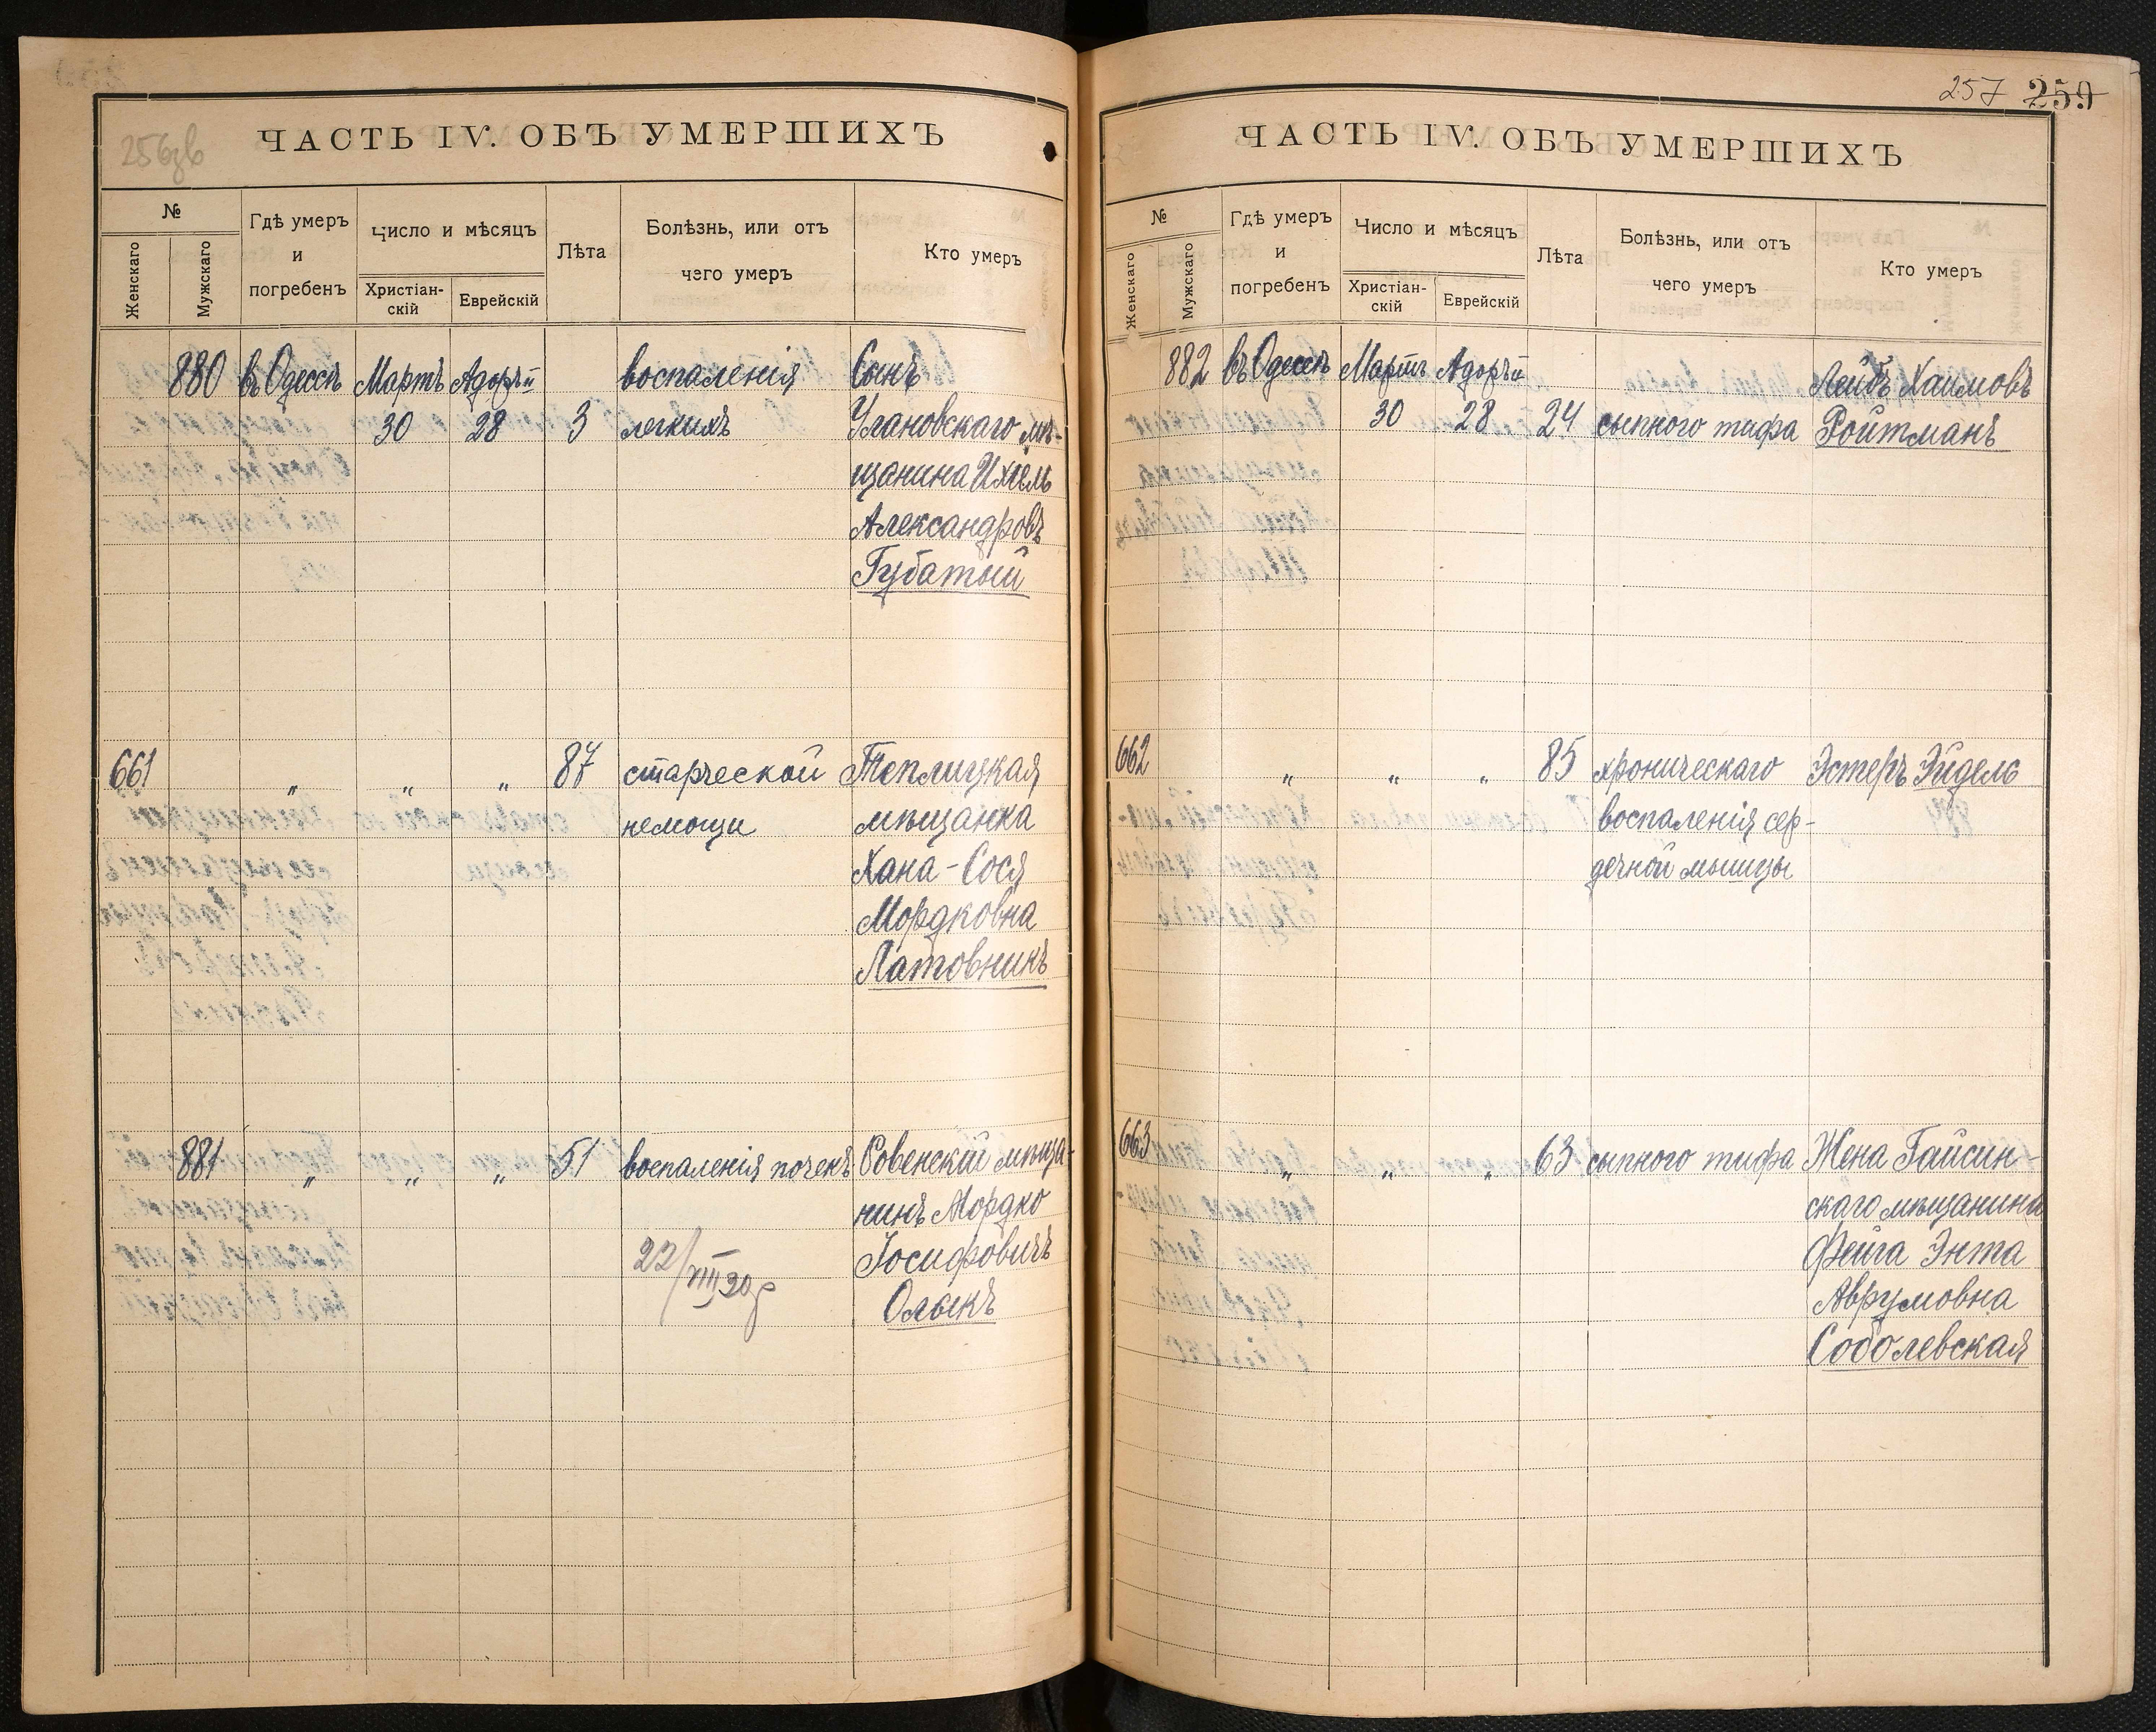 256зв
ЧАСТЬ IV. ОБЪ УМЕРШИХЪ
№
Женскаго
Мужскаго
Гдѣ умеръ
и
погребенъ
Число и мѣсяцъ
Христіан-
скій
Еврейскій
Лѣта
Болѣзнь, или отъ
чего умеръ
Кто умеръ
880 въ Одессѣ Мартъ Адоръ II воспаленія Сынъ
30 28 3 легкихъ Улановскаго мѣ-
щанина Ихіель
Александровъ
Губатый
661 „ „ „ 87 старческой Теплицкая
немощи мѣщанка
Хана-Сося
Мордковна
Латовникъ
881 „ „ „ 51 воспаленія почекъ Ровенскій мѣща-
нинъ Мордко
22/VIII 30 Іосифовичъ
Олыкъ
257 259
ЧАСТЬ IV. ОБЪ УМЕРШИХЪ
№
Женскаго
Мужскаго
Гдѣ умеръ
и
погребенъ
Число и мѣсяцъ
Христіан-
скій
Еврейскій
Лѣта
Болѣзнь, или отъ
чего умеръ
Кто умеръ
882 въ Одессѣ Мартъ Адоръ II Лейбъ Хаимовъ
30 28 24 сыпного тифа Ройтманъ
662 „ „ „ 85 хроническаго Эстеръ Эйдель
воспаленія сер-
дечной мышцы
663 „ „ „ 63 сыпного тифа Жена Гайсин-
скаго мѣщанина
Фейга Энта
Аврумовна
Соболевская